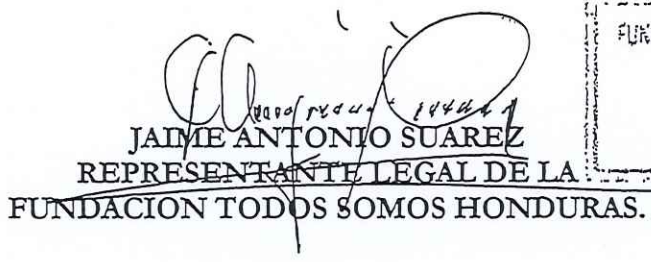 JAIME ANTONIO SUAREZ
REPRESENTANTE LEGAL DE LA
FUNDACION TODOS SOMOS HONDURAS.